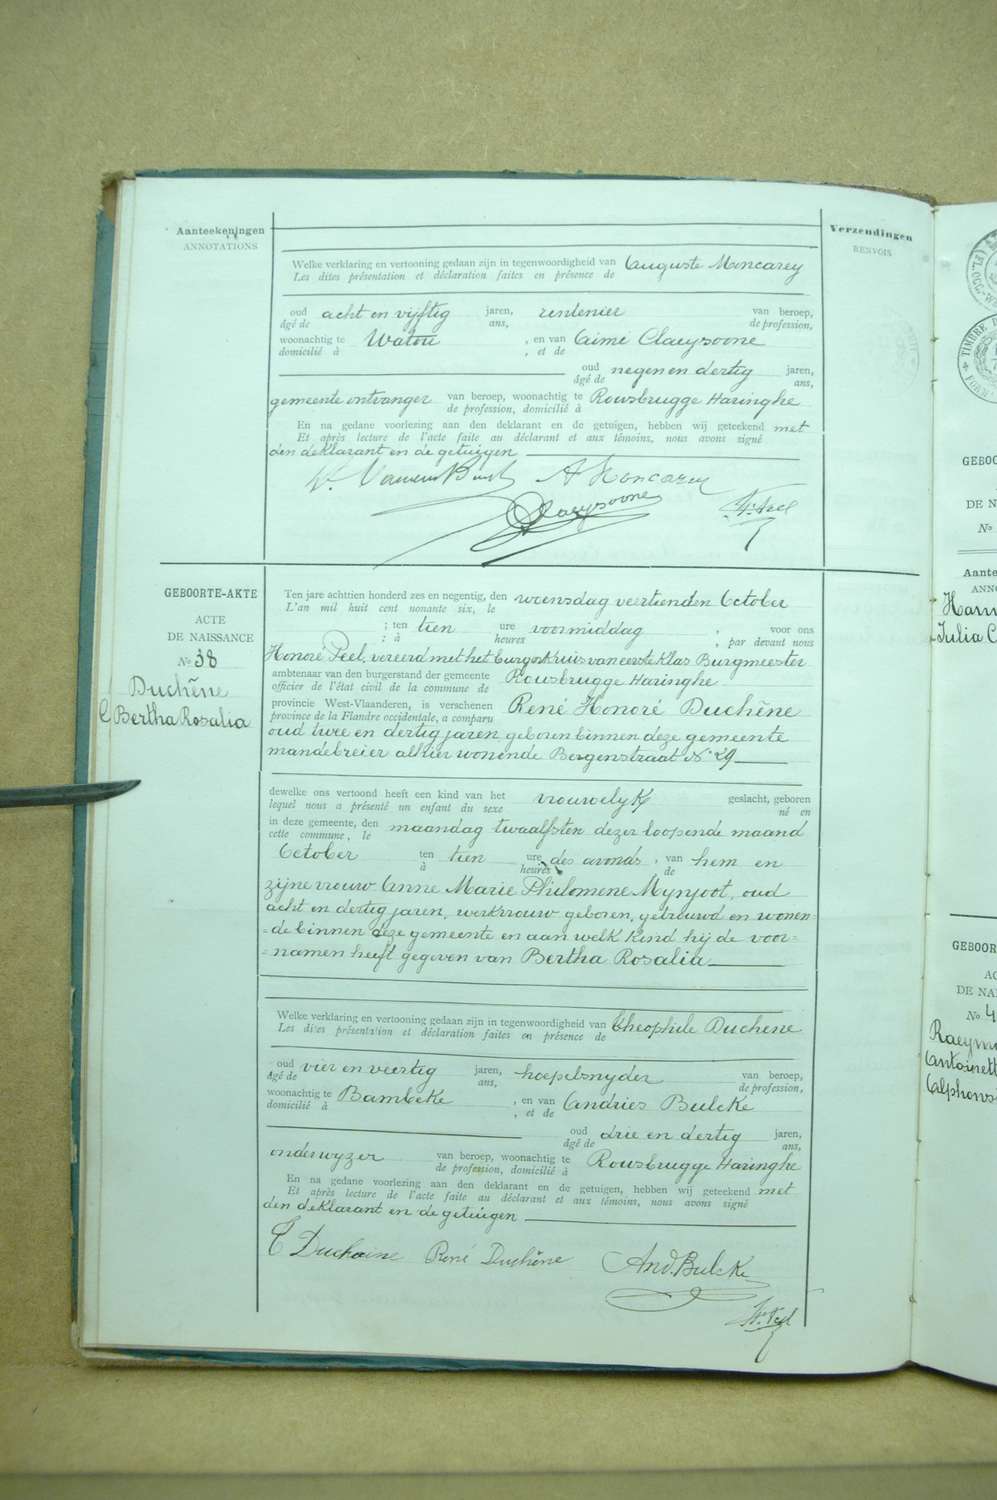 Aanteekeningen
ANNOTATIONS
Verzendingen
RENVOIS
Welke verklaring en vertooning gedaan zijn in tegenwoordigheid van Auguste Moncarey
Les dites présentation et déclaration faites en présence de
oud acht en vijftig jaren, rentenier van beroep,
âgé de ans, de profession,
woonachtig te Watou , en van Aimé Claeysoone
domicilié à , et de
oud negen en dertig jaren,
âgé de ans,
gemeente ontvanger van beroep, woonachtig te Rousbrugge Haringhe
de profession, domicilié à
En na gedane voorlezing aan den deklarant en de getuigen, hebben wij geteekend met
Et après lecture de l'acte faite au déclarant et aux témoins, nous avons signé
den deklarant en de getuigen
A Moncarey
Claeysoone
H. Peel
GEBOORTE-AKTE
ACTE
DE NAISSANCE
No 38
Duchêne
Bertha Rosalia
Ten jare achttien honderd zes en negentig, den woensdag veertienden October
L'an mil huit cent nonante six, le
; ten tien ure voormiddag , voor ons
: à heures , par devant nous
Honoré Peel, vereerd met het burgerkruis van eerste klas Burgmeester
ambtenaar van den burgerstand der gemeente Rousbrugge Haringhe
officier de l'état civil de la commune de
provincie West-Vlaanderen, is verschenen René Honoré Duchêne
province de la Flandre occidentale, a comparu
oud twee en dertig jaren, geboren binnen deze gemeente
mandebreier alhier wonende Bergenstraat No 29
dewelke ons vertoond heeft een kind van het vrouwelyk geslacht, geboren
lequel nous a présenté un enfant du sexe né en
in deze gemeente, den maandag twaalfsten dezer loopende maand
cette commune, le
October ten tien ure des avonds , van hem en
à heures de
zijne vrouw Anne Marie Philomene Mynjoot, oud
acht en dertig jaren, werkvrouw geboren, getrouwd en wonen=
=de binnen deze gemeente en aan welk kind hij de voor=
=namen heeft gegeven van Bertha Rosalia
Welke verklaring en vertooning gedaan zijn in tegenwoordigheid van Theophile Duchene
Les dites présentation et déclaration faites en présence de
oud vier en veertig jaren, hoepelsnyder van beroep,
âgé de ans, de profession,
woonachtig te Bambeke , en van Andries Bulcke
domicilié à , et de
oud drie en dertig jaren,
âgé de ans,
onderwyzer van beroep, woonachtig te Rousbrugge Haringhe
de profession, domicilié à
En na gedane voorlezing aan den deklarant en de getuigen, hebben wij geteekend met
Et après lecture de l'acte faite au déclarant et aux témoins, nous avons signé
den deklarant en de getuigen
T Duchaine René Duchêne And. Bulcke
H. Peel
TIMBRE
GEBOOR
DE N
No
Aante
ANNO
Julia C
GEBOOR
AC
DE NAI
No 4
Raeym
Antoinett
Alphons